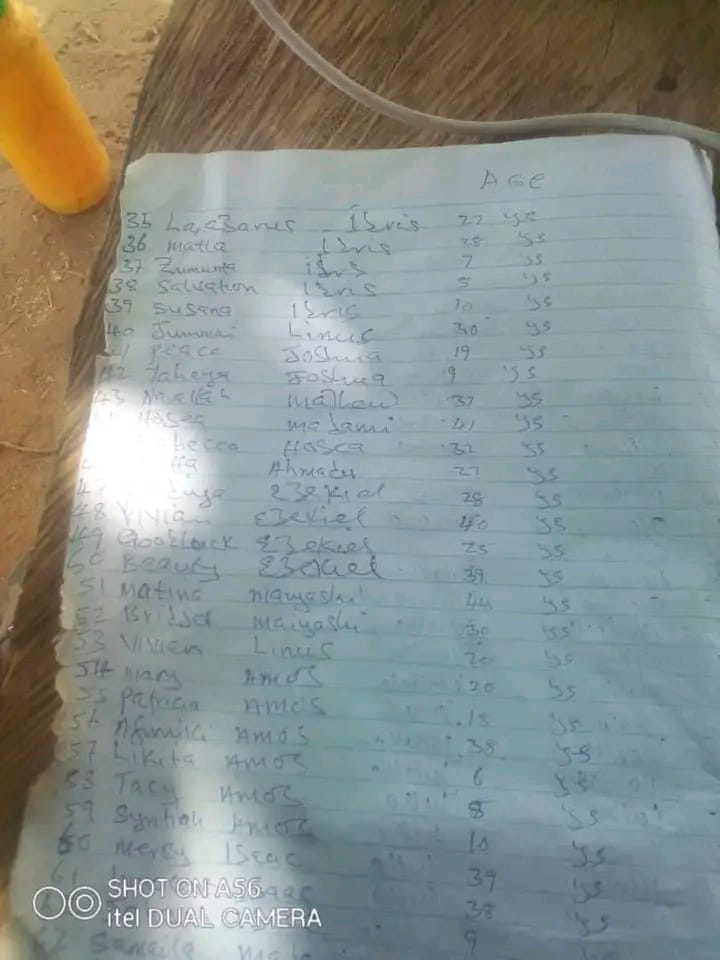 Age
35 Lazabarus Ibris 27 ys
36 matta Ibris 28 ys
37 Zumunta ibrs 7 ys
38 Salvation Ibris 5 ys
39 Susana Ibris 10 ys
40 Jummai Linus 30 ys
peace Joshua 19 ys
42 Joshua 9 ys
43 mathew 37 ys
Hosea madami 41 ys
becca Hosea 32 ys
Ahmadu 27 ys
47 Ezekiel 28 ys
48 Vivian Ezekiel 40 ys
49 Goodluck Ezekiel 25 ys
50 Beauty Ezekiel 39 ys
51 Matina maiyashi 44 ys
52 Bridget maiyashi 30 ys
53 Vivien Linus 20 ys
54 mary Amos 20 ys
55 Patricia Amos 18 ys
56 Amos 38 ys
57 Likita Amos 6 ys
58 Tacy Amos 8 ys
59 Syntiah Amos 10 ys
60 mercy Iseac 39 ys
61 38 ys
9
SHOT ON A56
itel DUAL CAMERA